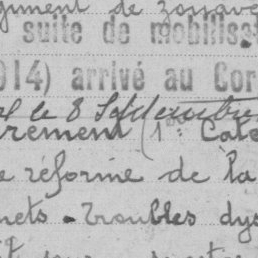 giment de zouave
suite de mobilisat
014) arrivé au Cor
el le 8 Septembre
rement (1º Caté
e réforme de la
nets - troubles dys